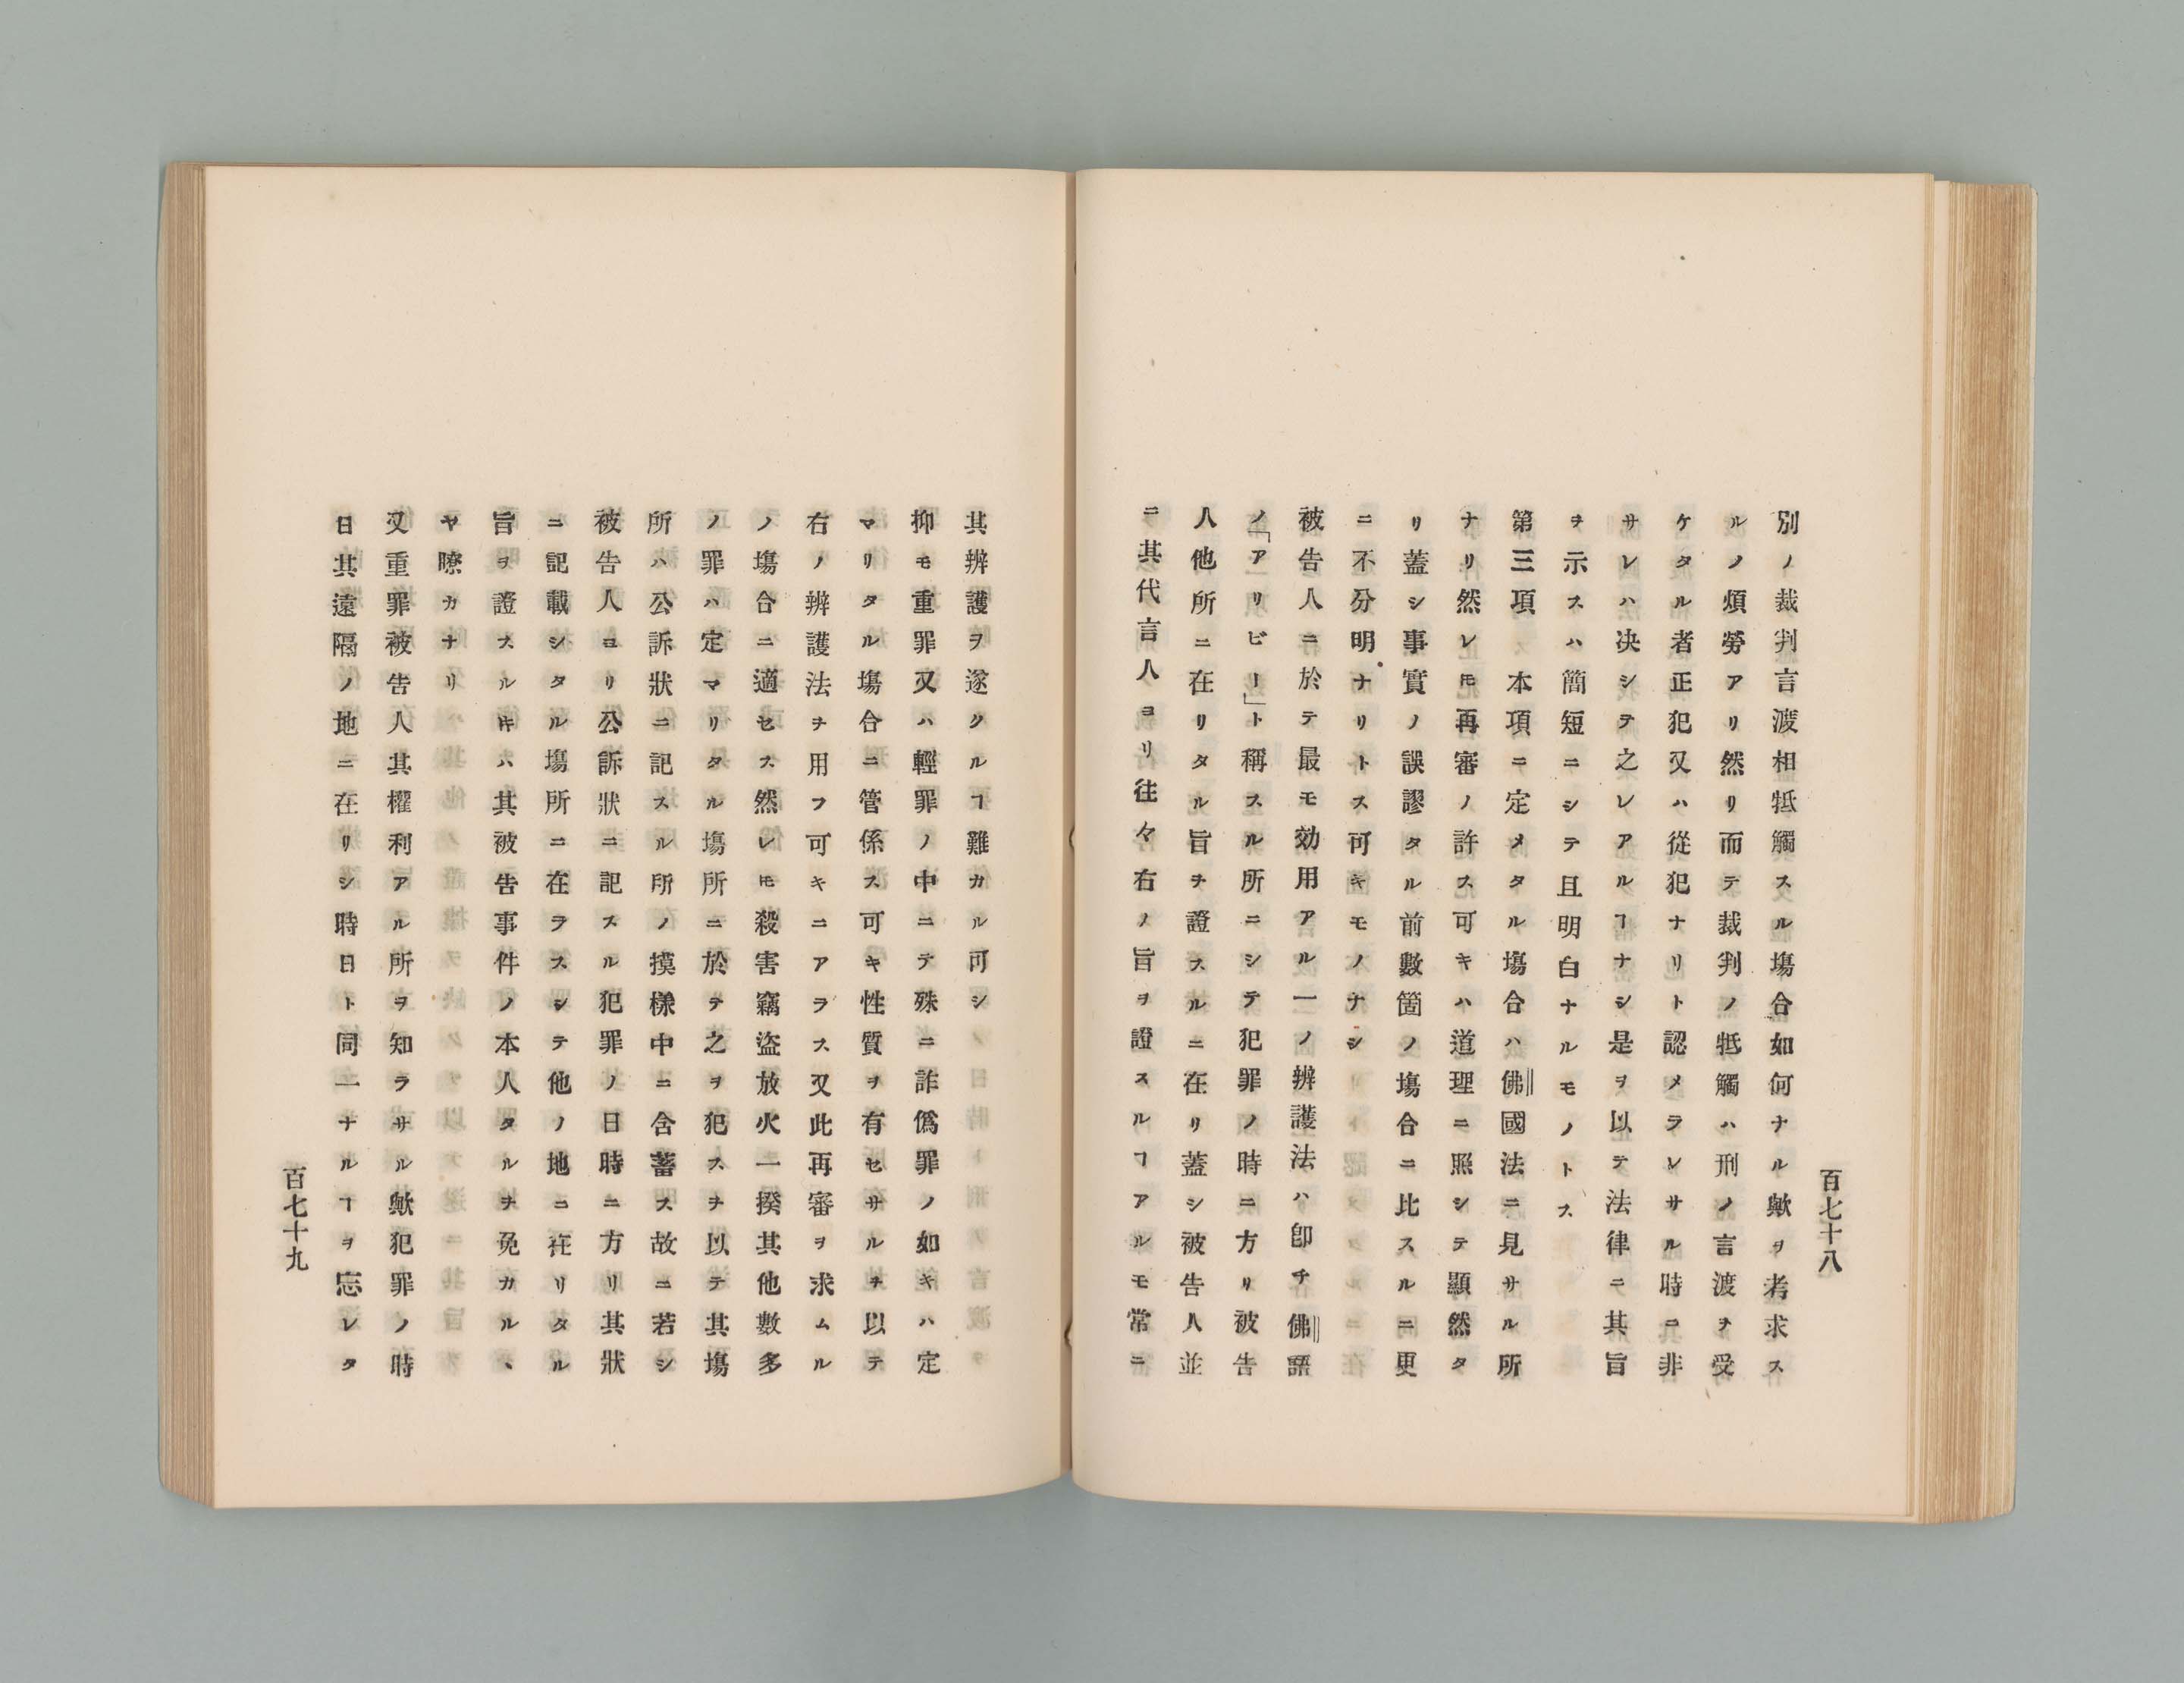 百七十八
別ノ裁判言渡相牴觸スル塲合如何ナル歟ヲ考求ス
ルノ煩勞アリ然リ而テ裁判ノ牴觸ハ刑ノ言渡ヲ受
ケタル者正犯又ハ從犯ナリト認メラレサル時ニ非
サレハ决シテ之レアルヿナシ是ヲ以テ法律ニ其旨
ヲ示スハ簡短ニシテ且明白ナルモノトス
第三項　本項ニ定メタル塲合ハ佛國法ニ見サル所
ナリ然レ𪜈再審ノ許ス可キハ道理ニ照シテ顯然タ
リ蓋シ事實ノ誤謬タル前數箇ノ塲合ニ比スルニ更
ニ不分明ナリトス可キモノナシ
被告人ニ於テ最モ効用アル一ノ辨護法ハ卽チ佛語
ノ「アリビー」ト稱スル所ニシテ犯罪ノ時ニ方リ被告
人他所ニ在リタル旨ヲ證スルニ在リ蓋シ被告人並
ニ其代言人ヨリ往々右ノ旨ヲ證スルヿアルモ常ニ
其辨護ヲ遂クルヿ難カル可シ
抑モ重罪又ハ輕罪ノ中ニテ殊ニ詐僞罪ノ如キハ定
マリタル塲合ニ管係ス可キ性質ヲ有セサルヲ以テ
右ノ辨護法ヲ用フ可キニアラス又此再審ヲ求ムル
ノ塲合ニ適セス然レ𪜈殺害竊盜放火一揆其他數多
ノ罪ハ定マリタル塲所ニ於テ之ヲ犯スヲ以テ其塲
所ハ公訴狀ニ記スル所ノ摸樣中ニ含蓄ス故ニ若シ
被告人ヨリ公訴狀ニ記スル犯罪ノ日時ニ方リ其狀
ニ記載シタル塲所ニ在ラスシテ他ノ地ニ在リタル
旨ヲ證スル𪜈ハ其被告事件ノ本人タルヲ免カルヽ
ヤ瞭カナリ
又重罪被告人其權利アル所ヲ知ラサル歟犯罪ノ時
日其遠隔ノ地ニ在リシ時日ト同一ナルヿヲ忘レタ
百七十九